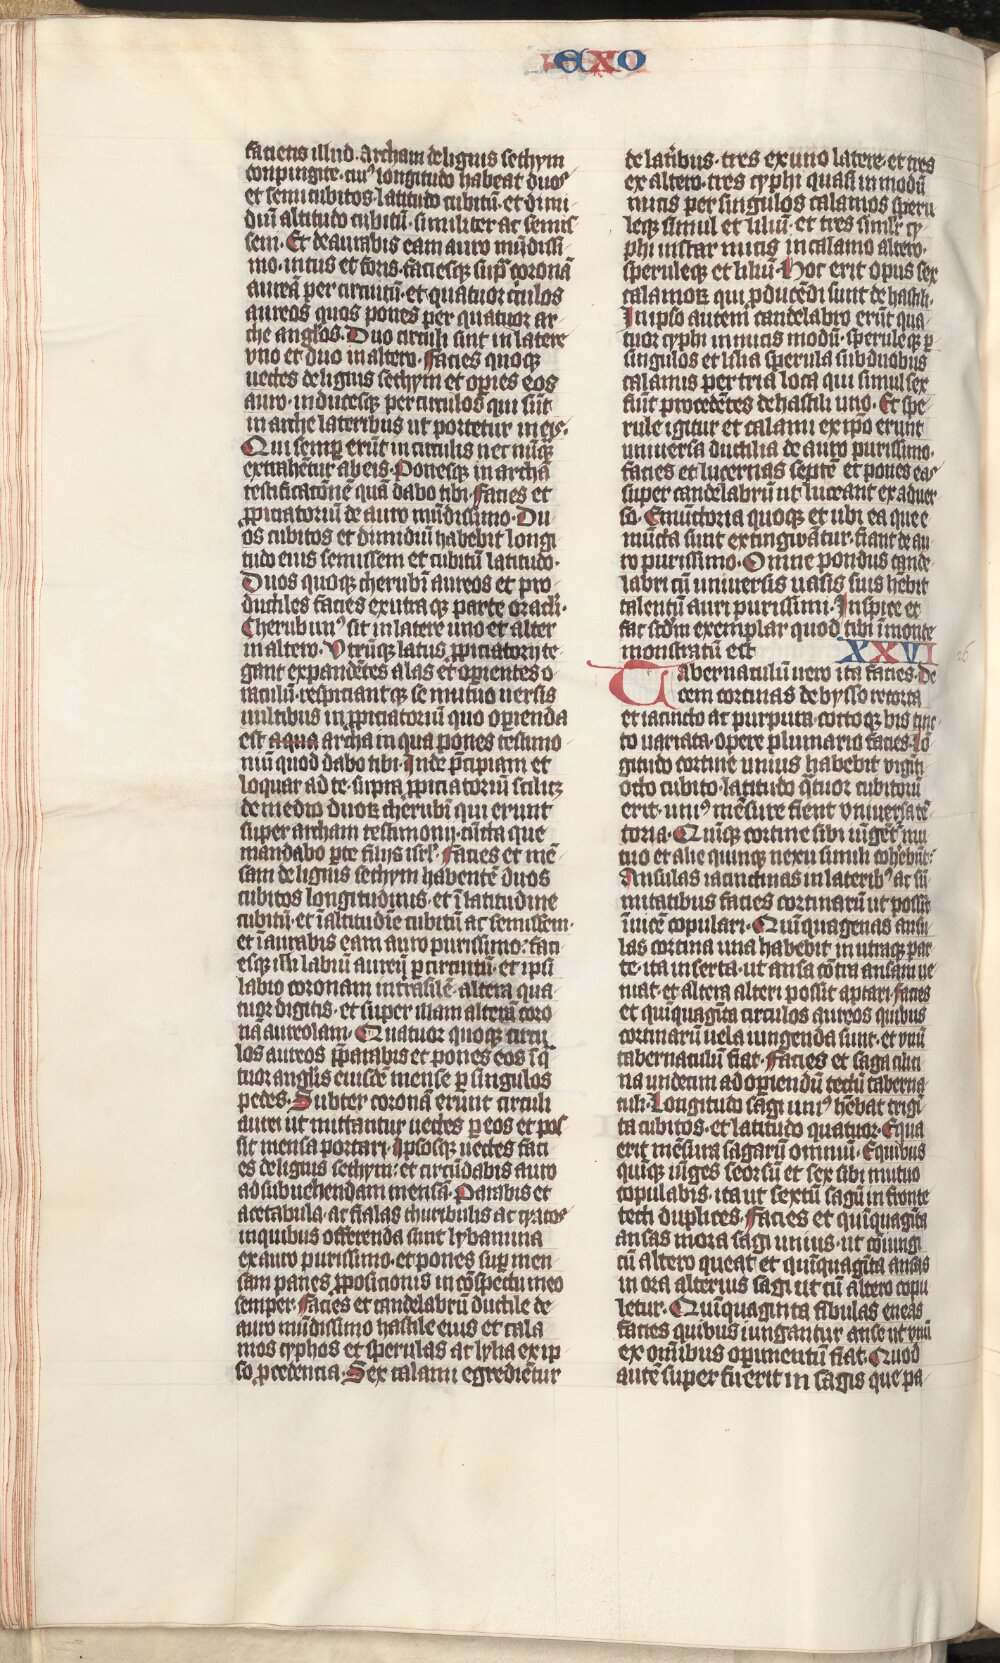 EXO
facietis illud. Archam de lignis sethym
conpingite. cuiꝰ longitudo habeat duos
et semi cubitos. latitudo cubitū. et dimi
diū altitudo cubitū. similiter ac semis
sem. Et deaurabis eam auro mūdissi
mo. intus et foris. faciesqꝫ supͣ coronā
aureā per circuitū. et quatuor ciculos
aureos quos pones per quatuor ar
che anglos. Duo circuli sint in latere
vno et duo in altero. Facies quoqꝫ
uectes de lignis sethym et opͥes eos
auro. inducesqꝫ per circulos qui sūt
in arche lateribus ut portetur in eis.
Qui semꝑ erūt in circulis nec nūqꝫ
extrahetur ab eis. Ponesqꝫ in archa
testificatōnē quā dabo tibi. Facies et
ꝓpiciatoriū de auro mūdissimo. Du
os cubitos et dimidiū habebit longi
tudo eius semissem et cubitū latitudo.
Duos quoqꝫ cherubī aureos et pro
ductiles facies ex utraqꝫ parte oracli.
Cherub unꝰ sit in latere uno et alter
in altero. Vtrūqꝫ latus ꝓpiciatorij te
gant expandētes alas et opientes o
raculū. respiciantqꝫ se mutuo uersis
uultibus in ꝓpiciatoriū quo opienda
est aqua archa in qua pones testimo
niū quod dabo tibi. Inde p̄cipiam et
loquar ad te. supra ꝓpiciatoriū scilicꝫ
de medio duoꝝ cherubī qui erunt
super archam testimonij. cūcta que
mandabo ꝑ te filijs isrl. Facies et mē
sam de lignis sethym habentē duos
cubitos longitudinis. et ī latitudine
cubitū. et ī altitudīe cubitū ac semissem.
et īaurabis eam auro purissimo. faci
esqꝫ illi labiū aureū ꝑ circuitū. et ipsi
labio coronam intrasilē. altera qua
tuor digitis. et super illam alterā coro
nā aureolam. Quatuor quoqꝫ circu
los aureos p̄parabis et pones eos ī q̄
tuor anglis eiusdē mense ꝑ singulos
pedes. Subter coronā erunt circuli
aurei ut mittantur uectes ꝑ eos et pos
sit mensa portari. Ipsosqꝫ uectes faci
es de lignis sethym. et circūdabis auro
ad subuehendam mensā. Parabis et
acetabula. ac fialas thuribulis ac cyatos
in quibus offerenda sunt lybamina
ex auro purissimo. et pones supꝑ men
sam panes ꝓposicionis in cōspectu meo
semper. Facies et candelabrū ductile de
auro mūdissimo hastile eius et cala
mos cyphos et sperulas ac lylia ex ip
so ꝓcedencia. Sex calami egredientur
de latībus. tres ex uno latere. et tres
ex altero. tres cyphi quasi in modū
nucis per singulos calamos speru
leqꝫ simul et liliū. et tres simlr cy
phi instar nucis in calamo altero.
speruleqꝫ et liliū. Hoc erit opus sex
calamoꝝ qui ꝓducēdi sunt de hastili.
In ipso autem candelabro erūt qua
tuor cyphi in nucis modū. speruleqꝫ ꝑ
singulos et lilia sperula sub duobus
calamis per tria loca qui simul sex
fiūt procedētes de hastili uno. Et spe
rule igitur et calami ex ipō erunt
uniuersa ductilia de auro purissimo.
facies et lucernas septē et pones eas
super candelabrū ut luceant ex aduer
so. Emūctoria quoqꝫ et ubi ea que e
mūcta sunt extinguātur. fiant de au
ro purissimo. Omne pondus cāde
labri cū uniuersis uasis suis hēbit
talentū auri purissimi. Inspice et
fac scdm exemplar quod tibi ī monte
monstratū est XXVI
Tabernaculū uero ita facies. De
cem cortinas de bysso retorta
et iacincto ac purpura. coctoqꝫ bis tinc
to uariata. opere plumario facies. Lō
gitudo cortine unius habebit vigīti
octo cubito. latitudo q̄tuor cubitorū
erit. uniꝰ mēsure fient vniuersa tē
toria. Quīqꝫ cortine sibi iūgētᷣ mu
tuo et alie quinqꝫ nexu simili cohēbūt.
Ansulas iacinctinas in lateribꝰ ac sū
mitatibus facies cortinarū ut possīt
īuicē copulari. Quīquagenas ansu
las cortina una habebit in utraqꝫ par
te. ita inserta. ut ansa cōtra ansam ue
niat. et altera alteri possit aptari. facies
et quiquagīta circulos aureos quibus
cortinarū uela iungenda sunt. et vnū
tabernaculū fiat. Facies et saga cilici
na undecim ad opiendū tectū taberna
culi. Longitudo sagi uniꝰ hēbat trigī
ta cubitos. et latitudo quatuor. Equa
erit mēsura sagarū omniū. Equibus
quīqꝫ iūges seorsū et sex sibi mutuo
copulabis. ita ut sextū sagū in fronte
tecti duplices. Facies et quīquagīta
ansas in ora sagi unius. ut cōiungi
cū altero queat et quīquagīta ansas
in ora alterius sagi ut cū altero copu
letur. Quīquaginta fibulas eneas
facies quibus iungantur anse ut vnū
ex oībus opimentū fiat. Quod
autē super fuerit in sagis que pa
26